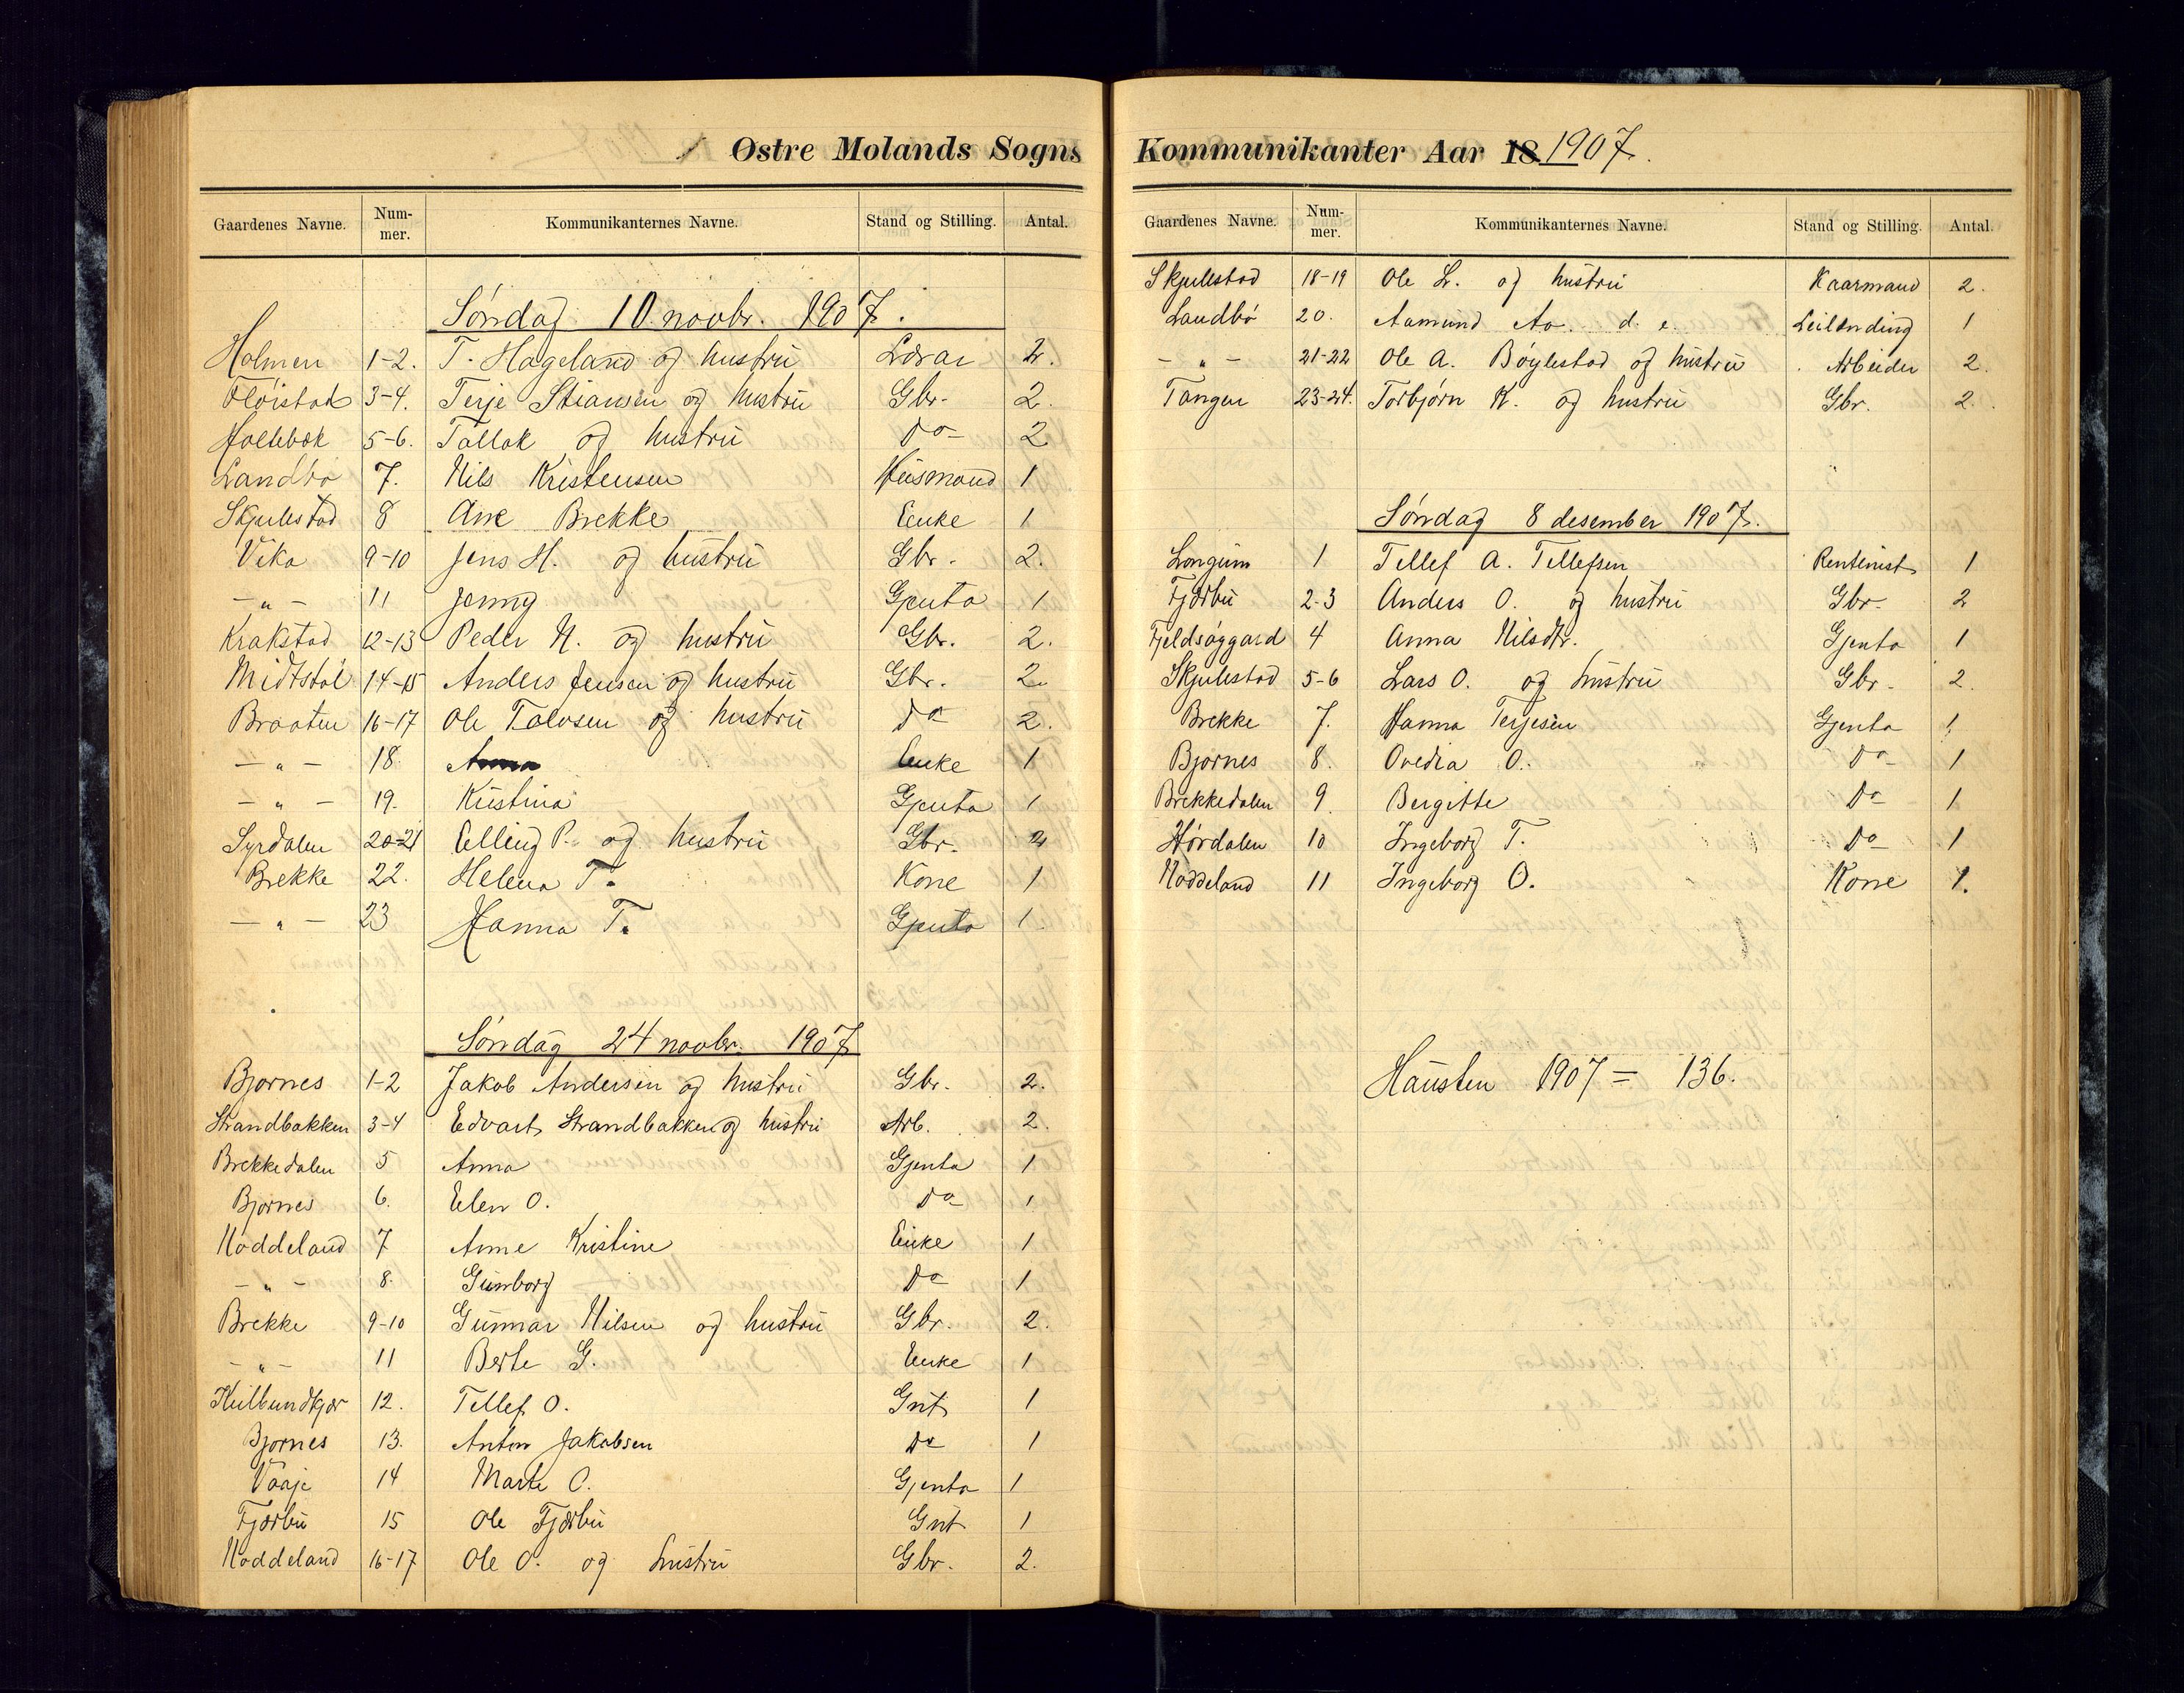 Østre Molands Sogns
Gaardenes Navne. Nummer. Kommunikanternes Navne. Stand og Stilling. Antal.
Søndag 10. novbr. 1907.
Holmen 1-2. T. Hageland og hustru Lærar 2.
Fløistad 3-4. Terje Stiansen og hustru Gbr. 2.
5-6. Tallak og hustru Do 2.
Landbø 7. Nils Kristensen Husmand 1
Skjulestad 8 Ane Brekke Enke 1
Vika 9-10 Jens H. og hustru Gbr. 2.
— " — 11 Jenny Gjenta 1
Krakstad 12-13 Peder N. og hustru Gbr. 2.
Midtstøl 14-15 Anders Jensen og hustru Gbr. 2.
Braaten 16-17 Ole Talvsen og hustru Do 2.
— " — 18. Anna Enke 1
— " — 19. Kristina Gjenta 1
Syrdalen 20-21 Elling P. og hustru Gbr. 2
Brekke 22. Helena T. Kone 1
— " — 23 Hanna T. Gjenta 1.
Søndag 24 novbr. 1907
Bjornes 1-2 Jakob Andersen og hustru Gbr. 2.
Strandbakken 3-4 Edvart Strandbakken og hustru Arb. 2.
Brekkedalen 5 Anna Gjenta 1
Bjornes 6. Elen O. Do 1
Noddeland 7 Anne Kristine Enke 1
— " — 8. Gunborg Do 1
Brekke 9-10 Gunnar Nilsen og hustru Gbr. 2.
— " — 11 Berte G. Enke 1
12. Tellef O. Gut 1
Bjornes 13. Anton Jakobsen Do 1
Vaaje 14 Marte O. Gjenta 1
Fjærbu 15 Ole Fjærbu Gut 1
Noddeland 16-17 Ole O. og hustru Gbr. 2.
Kommunikanter Aar 18 1907.
Gaardenes Navne. Nummer. Kommunikanternes Navne. Stand og Stilling. Antal.
Skjulestad 18-19 Ole L. og hustru Kaarmand 2.
Landbø 20. Aamund Aa. d. e. Leilending 1
— " — 21-22 Ole A. Bøylestad og hustru Arbeider 2.
Tangen 23-24. Torbjørn K. og hustru Gbr. 2.
Søndag 8 desember 1907.
Longum 1 Tellef A. Tellefsen Rentenist 1
Fjærbu 2-3 Anders O. og hustru Gbr. 2
Fjeldsøggard 4 Anna Nilsdtr. Gjenta 1
Skjulestad 5-6 Lars O. og hustru Gbr. 2.
Brekke 7. Hanna Terjesen Gjenta 1
Bjornes 8. Ovedia O. Do 1
Brekkedalen 9. Bergitte Do 1
Hørdalen 10 Ingeborg T. Do 1
Noddeland 11 Ingeborg O. Kone 1.
Hausten 1907 = 136.